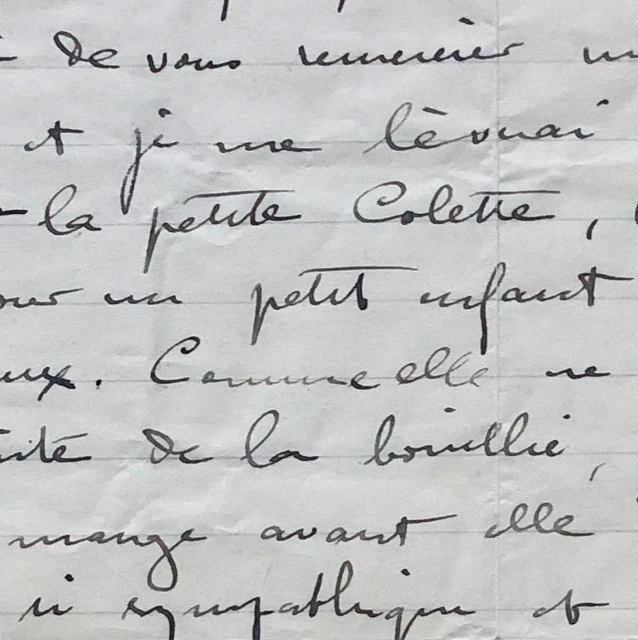 de vous remercier
et je me
la petite Colette,
un petit enfant
Comme elle ne
de la bouillie,
mange avant elle
si sympathique et